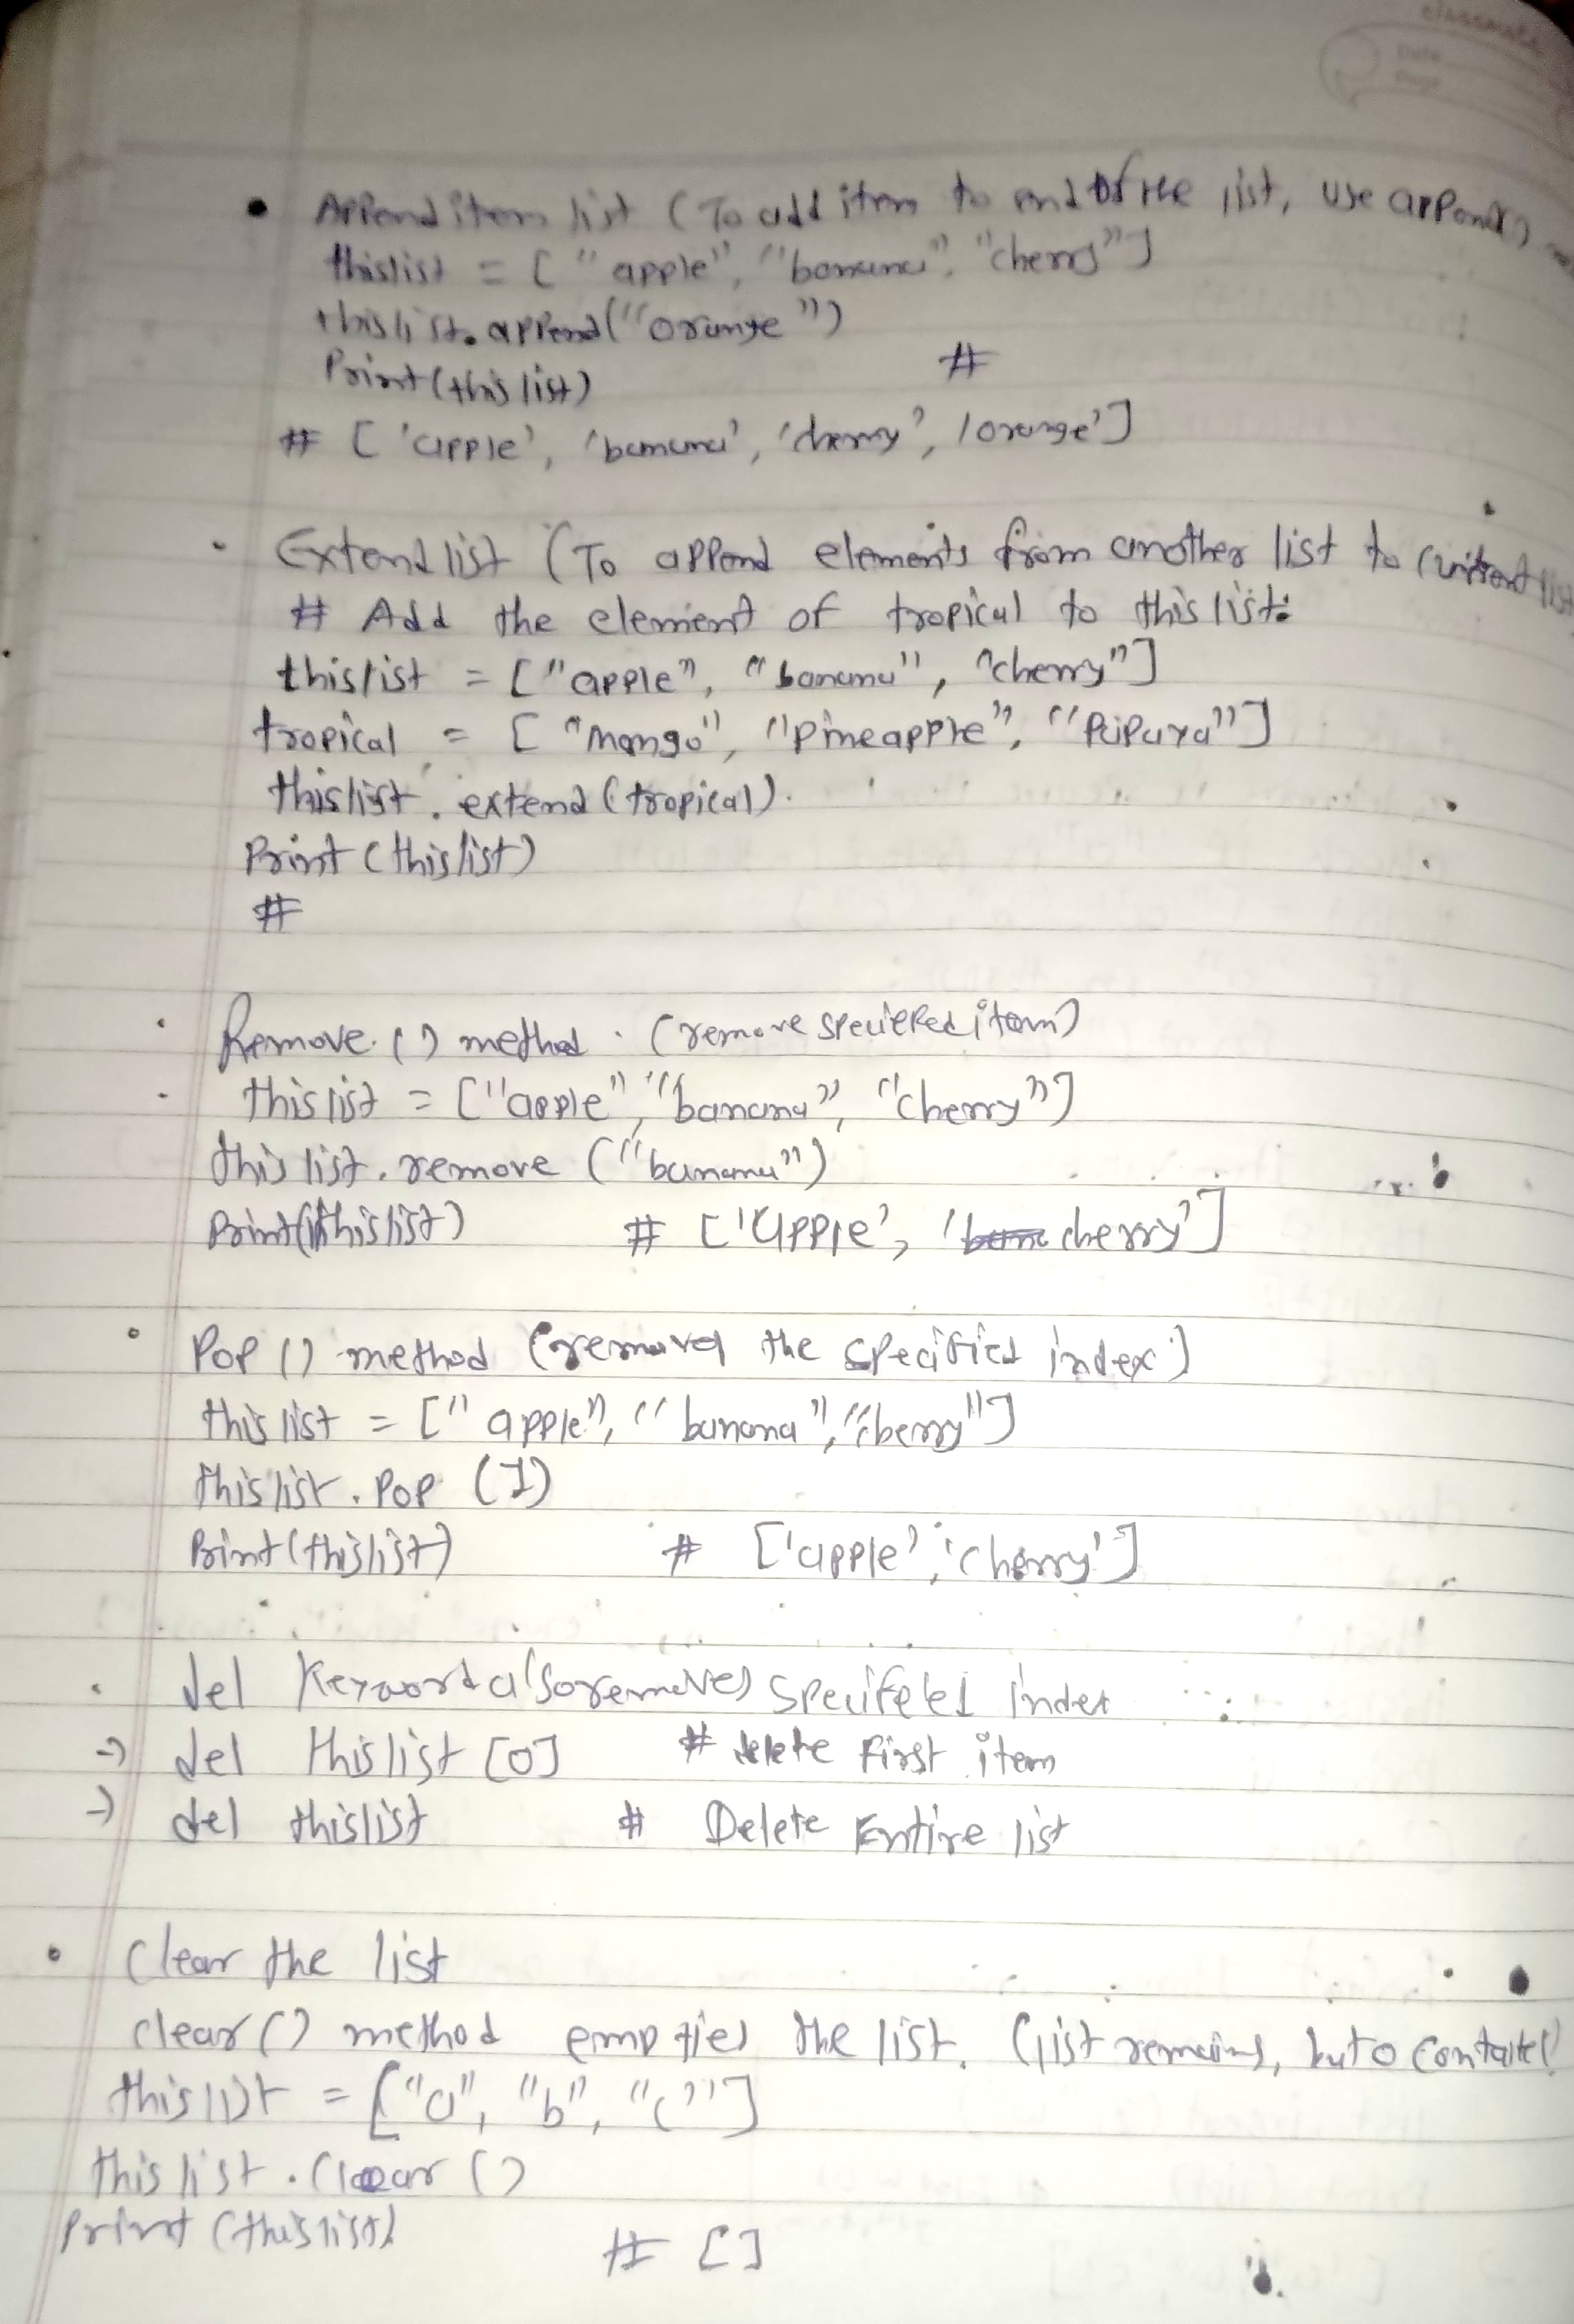 classmate
Date
Page
• Append item list (To add item to end of the list, use append()
thislist = [ "apple", "banana", "cherry"]
thislist.append("orange")
Print(thislist) #
# ['apple', 'banana', 'cherry', 'orange']
• Extend list (To append elements from another list to current list
# Add the element of tropical to this list:
thislist = ["apple", "banana", "cherry"]
tropical = [ "Mango", "Pineapple", "Papaya"]
thislist.extend(tropical).
Print(thislist)
#
• Remove() method. (remove specified item)
thislist = ["apple", "banana", "cherry"]
thislist.remove("banana")
Print(thislist) # ['apple', 'cherry']
• Pop() method (removes the specified index)
thislist = ["apple", "banana", "cherry"]
thislist.Pop (1)
Print(thislist) # ['apple', 'cherry']
• del keyword also removes specifeled index
→ del thislist [0] # delete first item
→ del thislist # Delete Entire list
• Clear the list
clear() method empties the list. (list remains, but 0
thislist = ["a", "b", "c"]
thislist.Clear()
Print(thislist) # []